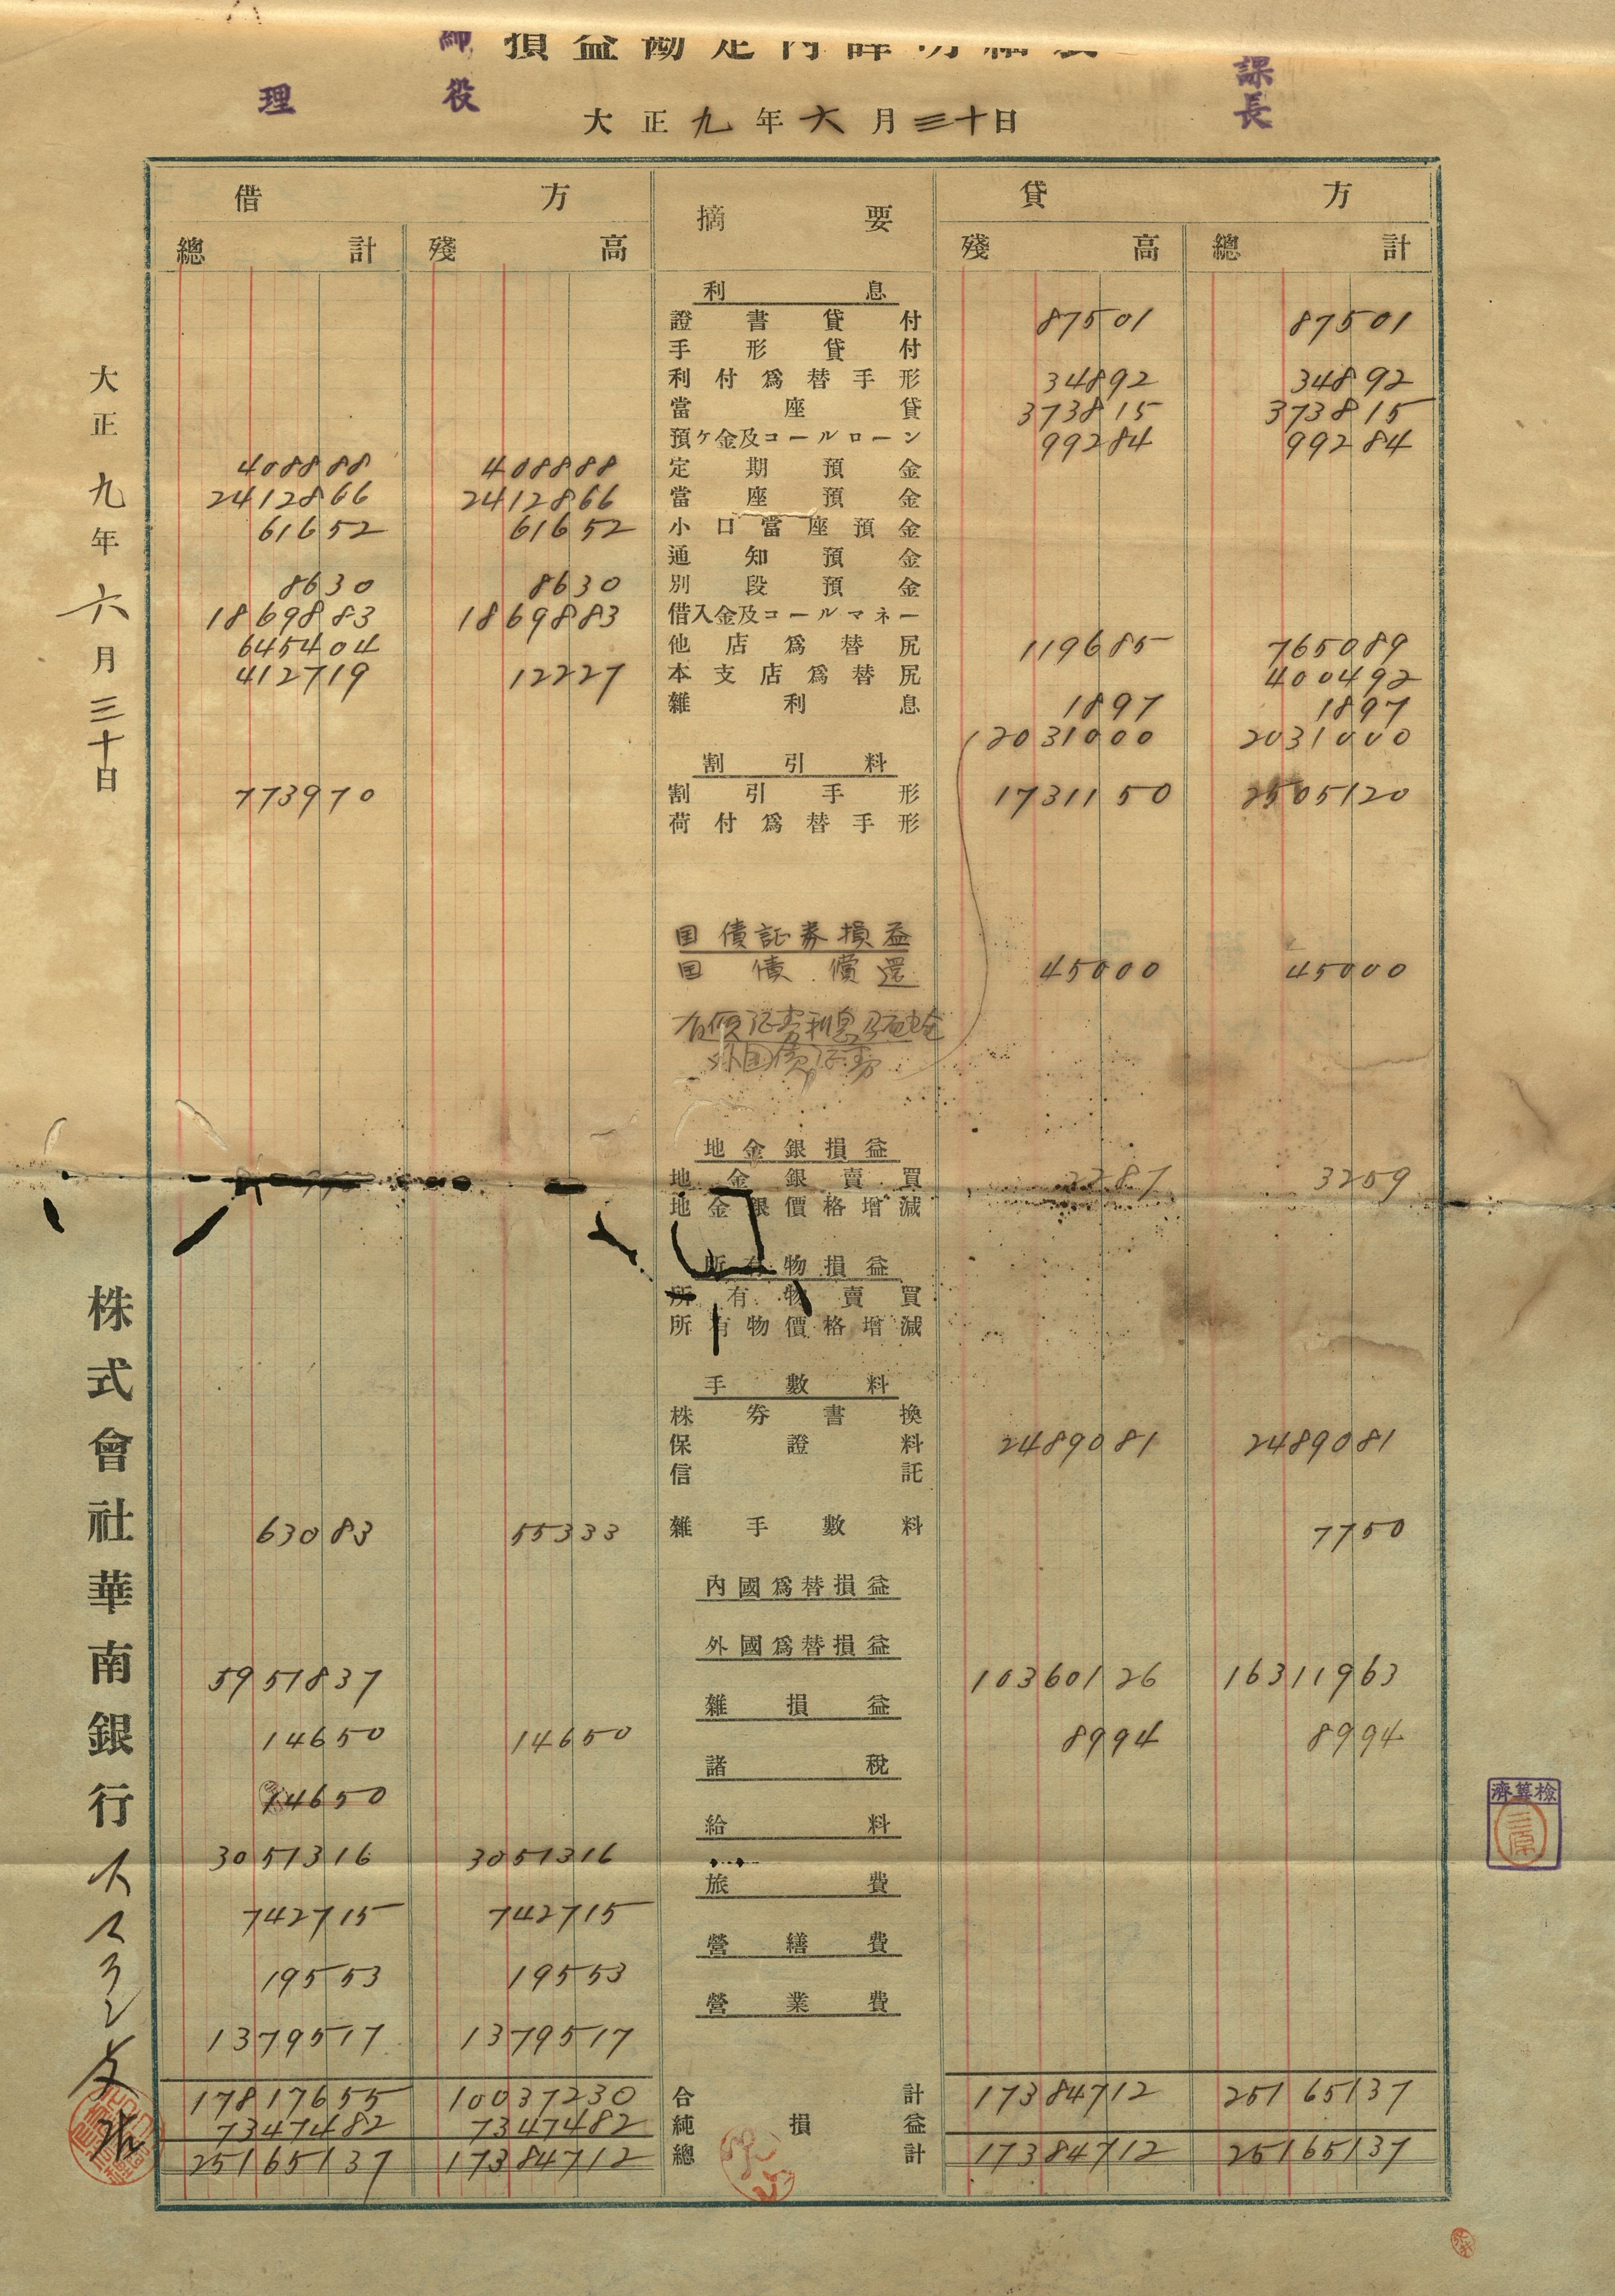 損益勘定內譯明細表
理
締役
課長
大正九年六月三十日
借方
摘要
貸方
總計
殘高
殘高
總計
利息
證書貸付 87501 87501
手形貸付
利付爲替手形 34892 34892
當座貸 373815 373815
預ケ金及コールローン 99284 99284
408888 408888 定期預金
2412866 2412866 當座預金
61652 61652 小口當座預金
通知預金
8630 8630 別段預金
1869883 1869883 借入金及コールマネー
645404 他店爲替尻 119685 765089
412719 12227 本支店爲替尻 400492
雜利息 1897 1897
2031000 2031000
割引料
773970 割引手形 1731150 2505120
荷付爲替手形
国債証券損益
国債償還 45000 45000
有價証券利息及配当金
外国債証券
地金銀損益
地金銀賣買 2287 3259
地金銀價格增減
所有物損益
所有物賣買
所有物價格增減
手數料
株券書換
保證料 2489081 2489081
信託
63083 55333 雜手數料 7750
內國爲替損益
外國爲替損益
5951837 10360126 16311963
雜損益
14650 14650 8994 8994
諸稅
14650
給料
3051316 3051316
旅費
742715 742715
營繕費
19553 19553
營業費
1379517 1379517
17817655 10037230 合計 17384712 25165137
7347482 7347482 純損益
25165137 17384712 總計 17384712 25165137
大正九年六月三十日
株式會社華南銀行
檢算濟
三原